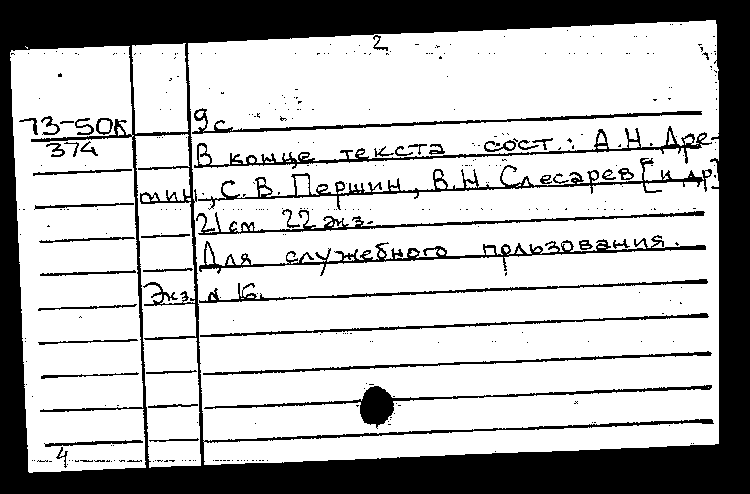 2
73-50К 9с
374 В конце текста сост.: А.Н. Дре-
мин, С.В. Першин, В.Н. Слесарев [и др]
21 см. 22 экз.
Для служебного пользования.
Экз. № 16.
4